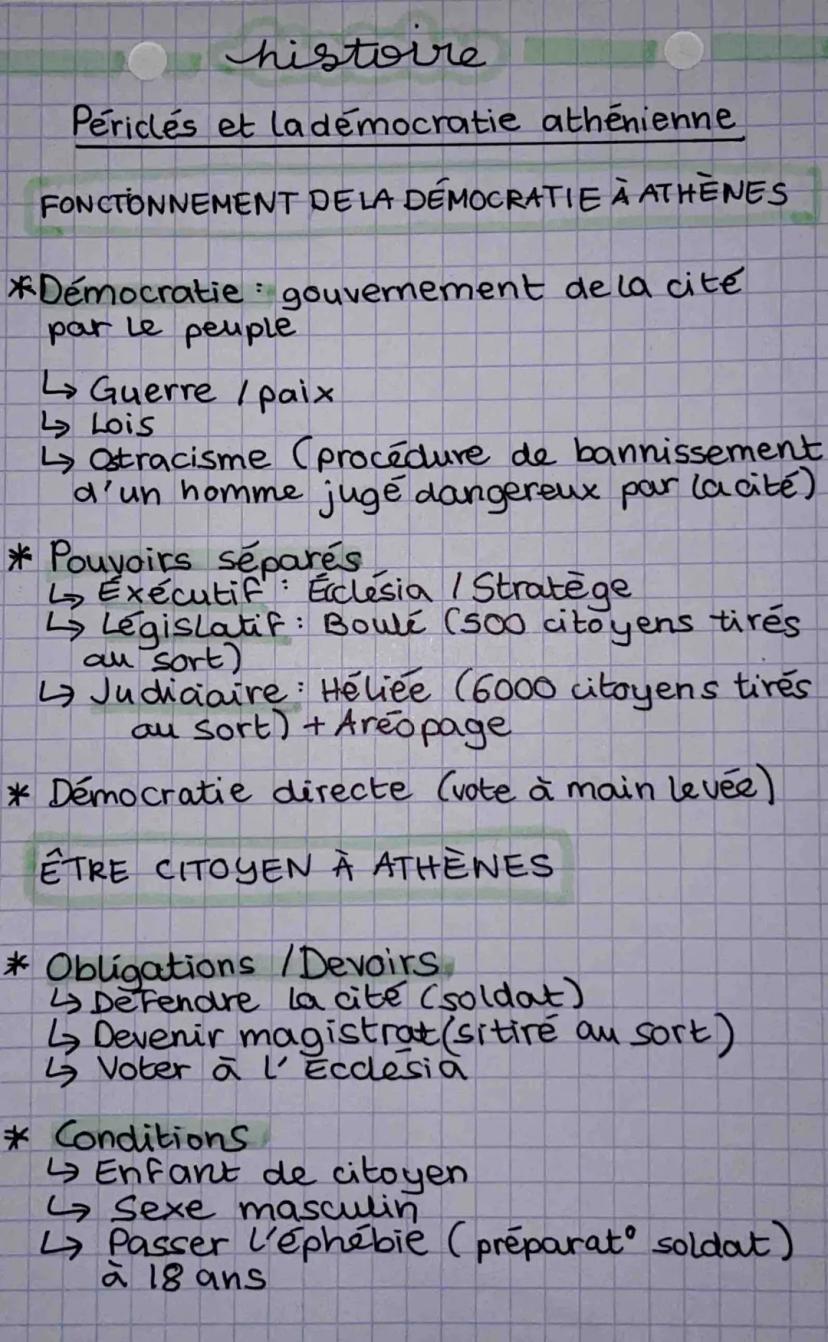 histoire
Périclés et la démocratie athénienne
FONCTIONNEMENT DE LA DÉMOCRATIE À ATHÈNES
* Démocratie : gouvernement de la cité
par le peuple
↳ Guerre / paix
↳ Lois
↳ Ostracisme (procédure de bannissement
d'un homme jugé dangereux par la cité)
* Pouvoirs séparés
↳ Éxécutif : Écclésia / Stratège
↳ Législatif : Boulé (500 citoyens tirés
au sort)
↳ Judiciaire : Héliée (6000 citoyens tirés
au sort) + Aréopage
* Démocratie directe (vote à main levée)
ÊTRE CITOYEN À ATHÈNES
* Obligations / Devoirs
↳ Défendre la cité (soldat)
↳ Devenir magistrat (si tiré au sort)
↳ Voter à l'Ecclésia
* Conditions
↳ Enfant de citoyen
↳ Sexe masculin
↳ Passer l'éphébie (préparat° soldat)
à 18 ans